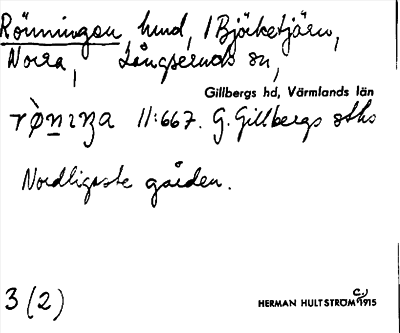 Rönningen hmd, 1 Björketjärn,
Norra, Långseruds sn,
Gillbergs hd, Värmlands län
11:667. G. Gillbergs
Nordligaste gården.
3 (2)
HERMAN HULTSTRÖM C:) 1915